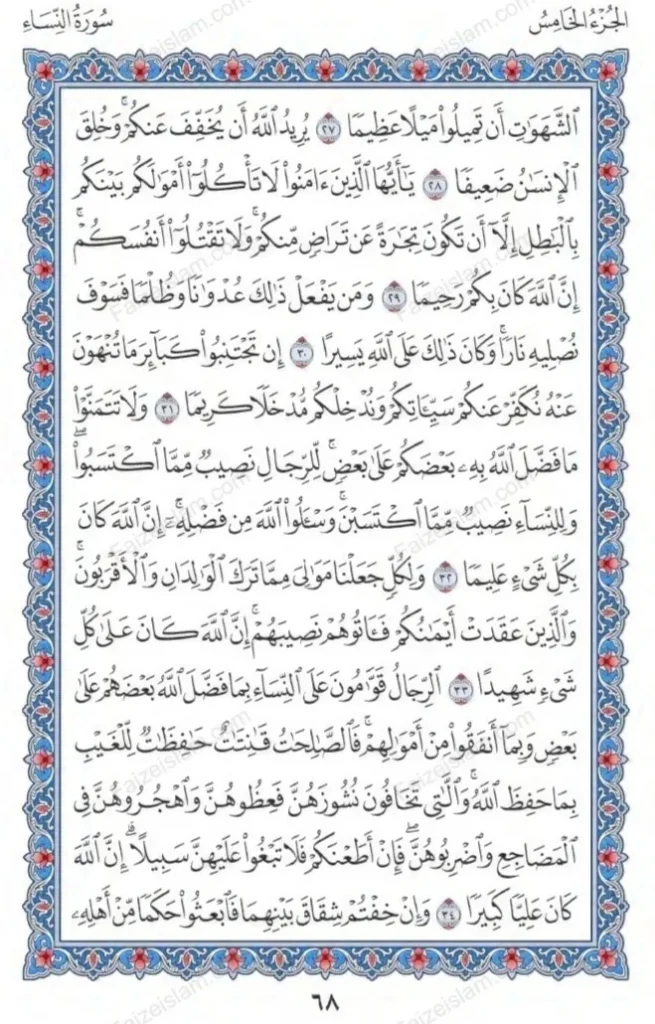 الجزء الخامس
سورة النساء
ٱلشَّهَوَٰتِ أَن تَمِيلُوا۟ مَيْلًا عَظِيمًا ٢٧ يُرِيدُ ٱللَّهُ أَن يُخَفِّفَ عَنكُمْ ۚ وَخُلِقَ
ٱلْإِنسَٰنُ ضَعِيفًا ٢٨ يَٰٓأَيُّهَا ٱلَّذِينَ ءَامَنُوا۟ لَا تَأْكُلُوٓا۟ أَمْوَٰلَكُم بَيْنَكُم
بِٱلْبَٰطِلِ إِلَّآ أَن تَكُونَ تِجَٰرَةً عَن تَرَاضٍ مِّنكُمْ ۚ وَلَا تَقْتُلُوٓا۟ أَنفُسَكُمْ ۚ
إِنَّ ٱللَّهَ كَانَ بِكُمْ رَحِيمًا ٢٩ وَمَن يَفْعَلْ ذَٰلِكَ عُدْوَٰنًا وَظُلْمًا فَسَوْفَ
نُصْلِيهِ نَارًا ۚ وَكَانَ ذَٰلِكَ عَلَى ٱللَّهِ يَسِيرًا ٣٠ إِن تَجْتَنِبُوا۟ كَبَآئِرَ مَا تُنْهَوْنَ
عَنْهُ نُكَفِّرْ عَنكُمْ سَيِّـَٔاتِكُمْ وَنُدْخِلْكُم مُّدْخَلًا كَرِيمًا ٣١ وَلَا تَتَمَنَّوْا۟
مَا فَضَّلَ ٱللَّهُ بِهِۦ بَعْضَكُمْ عَلَىٰ بَعْضٍ ۚ لِّلرِّجَالِ نَصِيبٌ مِّمَّا ٱكْتَسَبُوا۟ ۖ
وَلِلنِّسَآءِ نَصِيبٌ مِّمَّا ٱكْتَسَبْنَ ۚ وَسْـَٔلُوا۟ ٱللَّهَ مِن فَضْلِهِۦٓ ۗ إِنَّ ٱللَّهَ كَانَ
بِكُلِّ شَىْءٍ عَلِيمًا ٣٢ وَلِكُلٍّ جَعَلْنَا مَوَٰلِىَ مِمَّا تَرَكَ ٱلْوَٰلِدَانِ وَٱلْأَقْرَبُونَ ۚ
وَٱلَّذِينَ عَقَدَتْ أَيْمَٰنُكُمْ فَـَٔاتُوهُمْ نَصِيبَهُمْ ۚ إِنَّ ٱللَّهَ كَانَ عَلَىٰ كُلِّ
شَىْءٍ شَهِيدًا ٣٣ ٱلرِّجَالُ قَوَّٰمُونَ عَلَى ٱلنِّسَآءِ بِمَا فَضَّلَ ٱللَّهُ بَعْضَهُمْ عَلَىٰ
بَعْضٍ وَبِمَآ أَنفَقُوا۟ مِنْ أَمْوَٰلِهِمْ ۚ فَٱلصَّٰلِحَٰتُ قَٰنِتَٰتٌ حَٰفِظَٰتٌ لِّلْغَيْبِ
بِمَا حَفِظَ ٱللَّهُ ۚ وَٱلَّٰتِى تَخَافُونَ نُشُوزَهُنَّ فَعِظُوهُنَّ وَٱهْجُرُوهُنَّ فِى
ٱلْمَضَاجِعِ وَٱضْرِبُوهُنَّ ۖ فَإِنْ أَطَعْنَكُمْ فَلَا تَبْغُوا۟ عَلَيْهِنَّ سَبِيلًا ۗ إِنَّ ٱللَّهَ
كَانَ عَلِيًّا كَبِيرًا ٣٤ وَإِنْ خِفْتُمْ شِقَاقَ بَيْنِهِمَا فَٱبْعَثُوا۟ حَكَمًا مِّنْ أَهْلِهِۦ
٦٨
Faizeislam.com